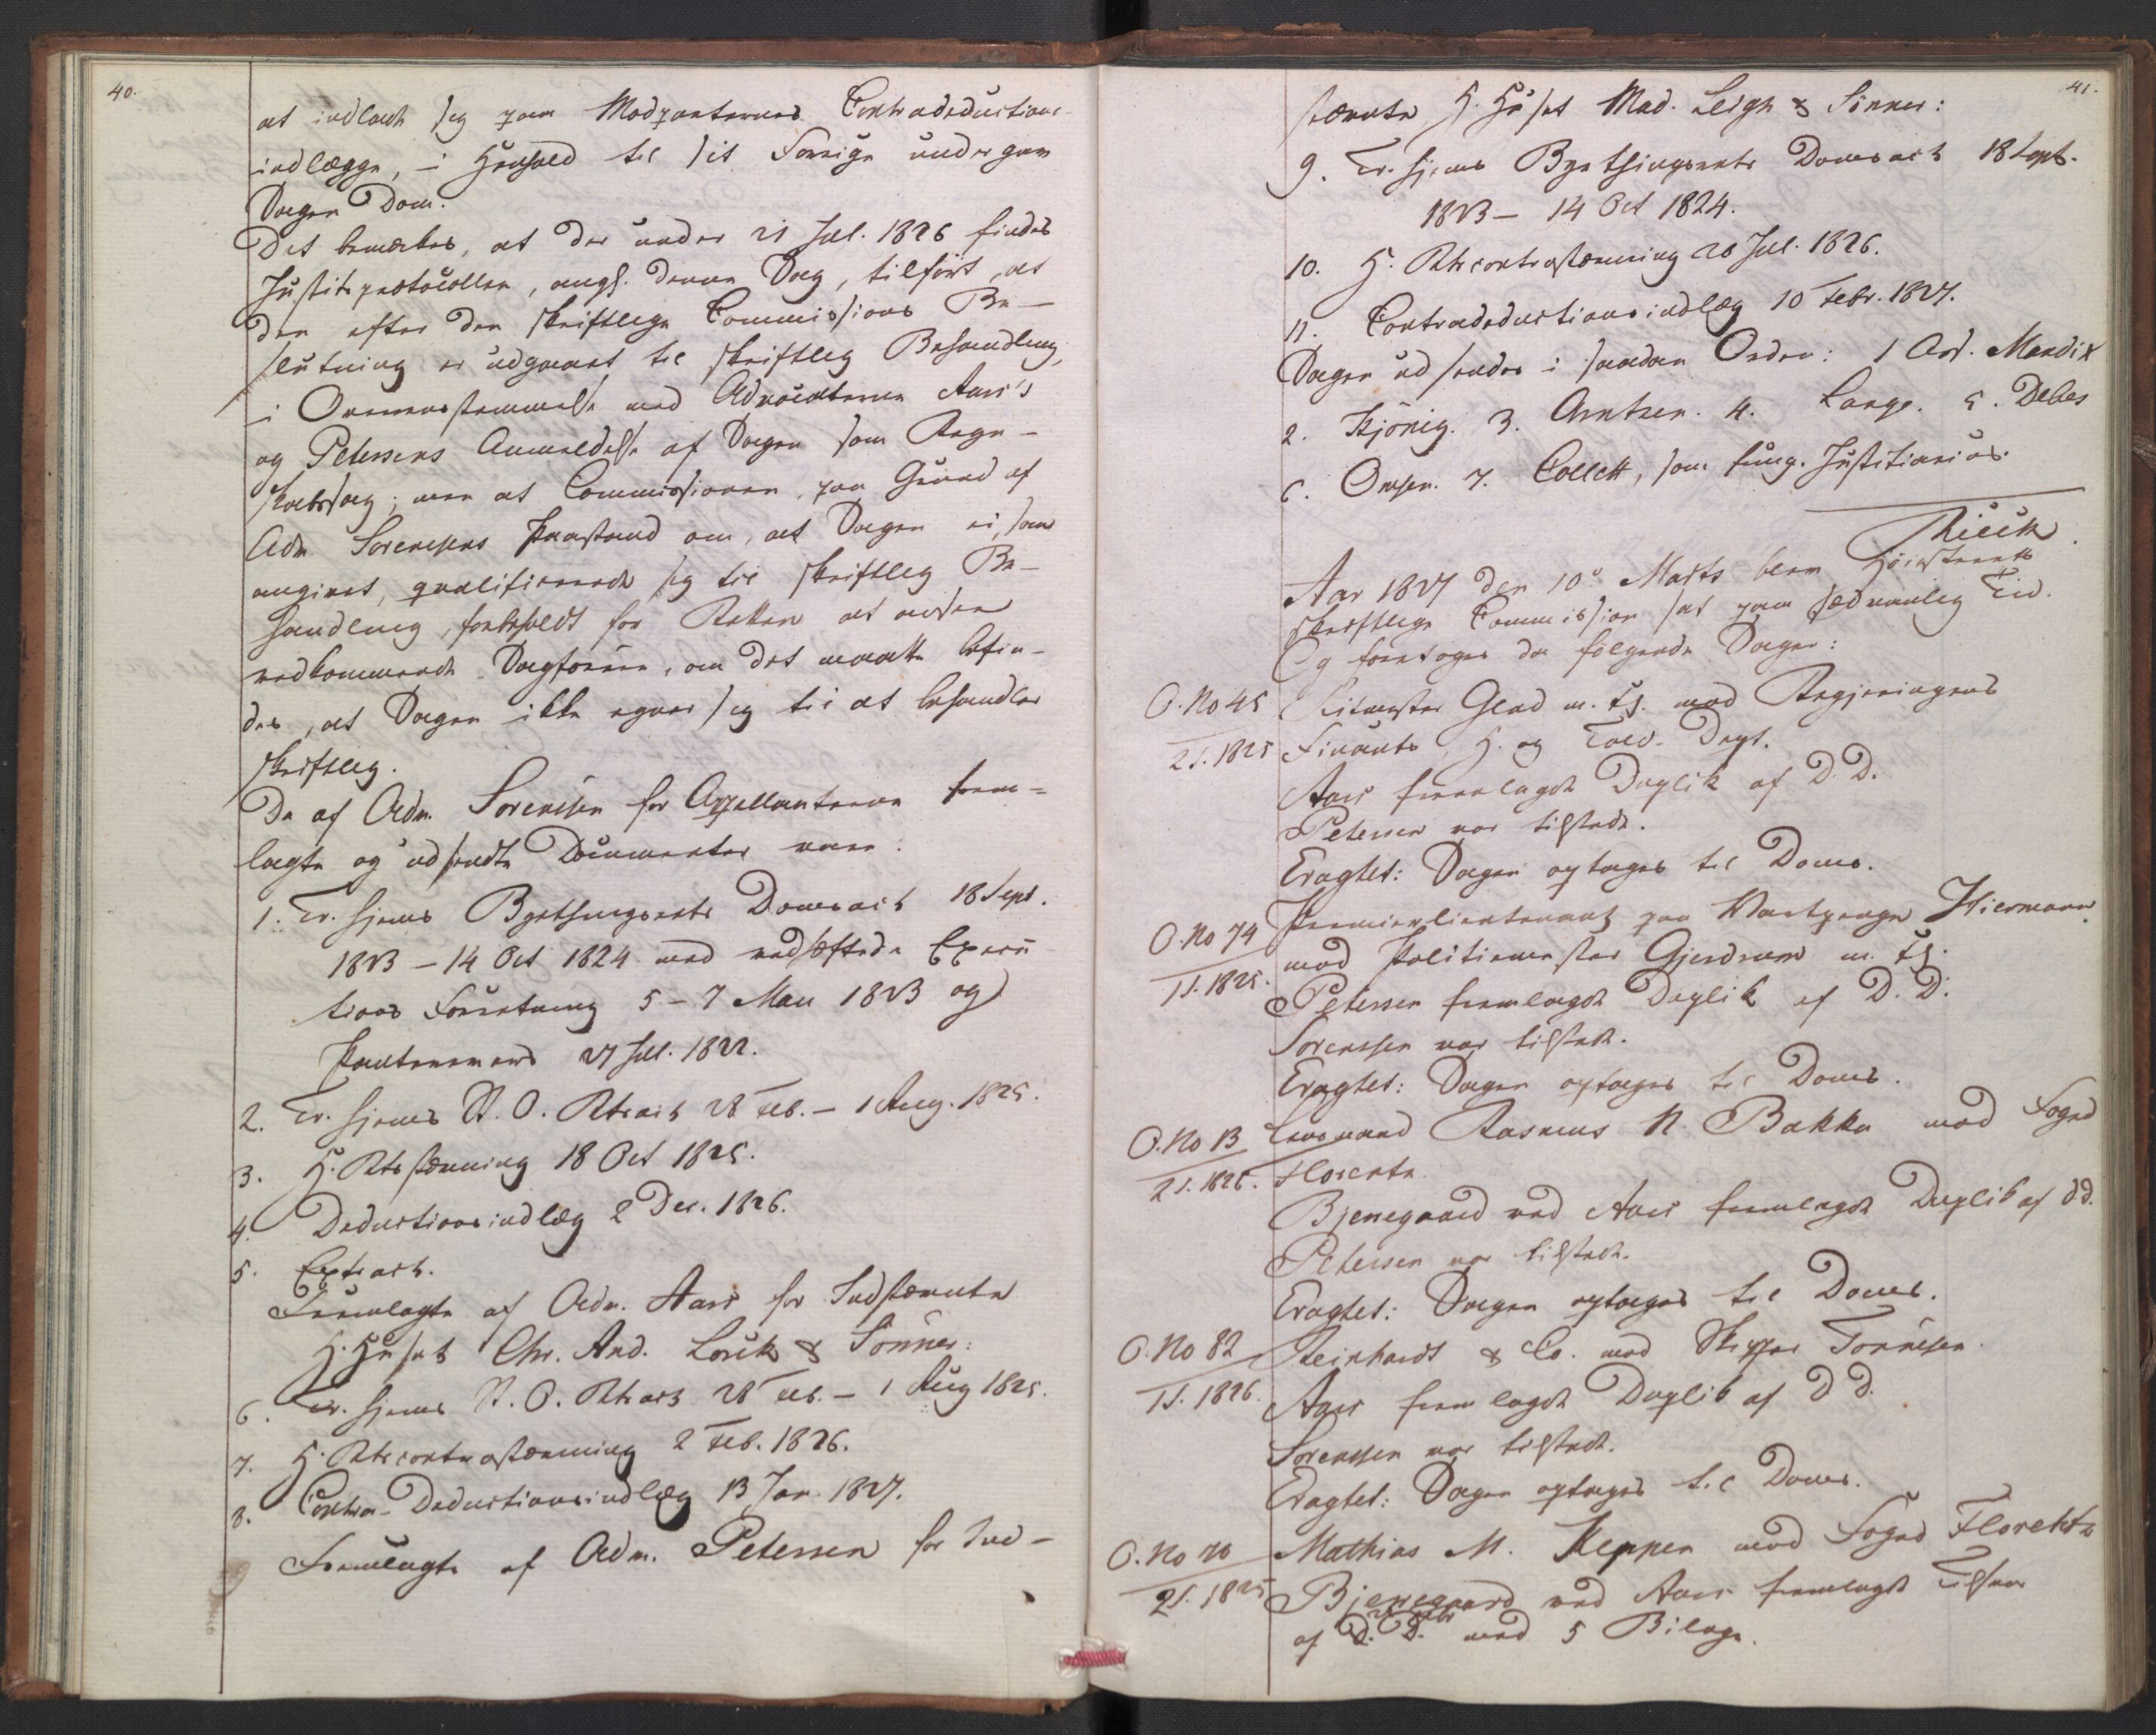 40.
at indlade sig paa Modparternes Contradeductions-
indlægge, i Henhold til sit Forrige undergav
Sagen Dom.
Det bemærkes, at der under 21 Jul. 1826 findes
Justitsprotocollen, angl. denne Sag, tilført, at
den efter den skriftlige Commissions Be-
slutning er udgaaet til skriftlig Behandling,
i Overensstemmelse med Advocaterne Aars's
og Petersens Anmeldelse af Sagen som Regn-
skabssag; men at Commissionen, paa Grund af
Adv. Sørenssens Paastand om, at Sagen ei, som
angivet, qvalificerede sig til skriftlig Be-
handling, forbeholdt for Retten at ansee
vedkommende Sagførere, om det maatte befin-
des, at Sagen ikke egner sig til at behandles
skriftlig.
De af Adv. Sørenssen for Appellanterne frem-
lagte og udsendte Documenter vare:
1. Tr.hjems Bythingsrets Domsact 18 Sept.
1823 – 14 Oct 1824 med vedhæftede Execu
tions Forretning 5 – 7 Mai 1823 og
Panteværns 27 Jul. 1822.
2. Tr.hjems St. O. Rtsact 28 Feb. – 1 Aug. 1825.
3. H. Rtsstævning 18 Oct 1825.
4. Deductionsindlæg 2 Dec. 1826.
5. Extract.
Fremlagte af Adv. Aars for Indstævnte
H. Huset Chr. And. Lorck & Sønner:
6. Tr.hjems St. O. Rtsact 28 Feb. – 1 Aug 1825.
7. H. Rtscontrastævning 2 Feb. 1826.
8. Contra-Deductionsindlæg 13 Jan. 1827.
Fremlagte af Adv. Petersen for Ind-
41.
stævnte H. Huset Mad. Leigh & Sønner:
9. Tr.hjems Bythingsrets Domsact 18 Sept.
1823 – 14 Oct 1824.
10. H. Rtscontrastævning 20 Jul. 1826.
11. Contradeductionsindlæg 10 Febr. 1827.
Sagen udsendes i saadan Orden: 1 Ass. Mandix
2. Kjönig. 3. Arntzen. 4. Lange. 5. Debes
6. Omsen. 7. Collett, som fung. Justitiarius.
Rieck.
Aar 1827 den 10de Marts blev Høiesterets
skriftlige Commission sat paa sædvanlig Tid.
Og foretoges da følgende Sager:
O. No 45
2 S. 1825
Ritmester Glad m. fl. mod Regjeringens
Finants, H. og Told-Dept.
Aars fremlagde Duplik af D. D.
Petersen var tilstede.
Eragtet: Sagen optages til Doms.
O. No 74
1 S. 1825.
Premierlieutenant paa Vartpenge Hiermann
mod Politiemester Gjerdrum m. fl.
Petersen fremlagde Duplik af D. D.
Sørenssen var tilstede.
Eragtet: Sagen optages til Doms.
O. No 13
2 S. 1826.
Rasmus N. Bakka mod Foged
Florentz.
Bjerregaard ved Aars fremlagde Duplik af DD.
Petersen var tilstede.
Eragtet: Sagen optages til Doms.
O. No 82
1 S. 1826.
Reinhardt & Co. mod Skipper Tønnesen.
Aars fremlagde Duplik af DD.
Sørenssen var tilstede.
Eragtet: Sagen optages til Doms.
O. No 20
2 S. 1825
Mathias M. Keppen mod Foged Florentz
Bjerregaard ved Aars fremlagde Tilsvar
af med 5 Bilage.